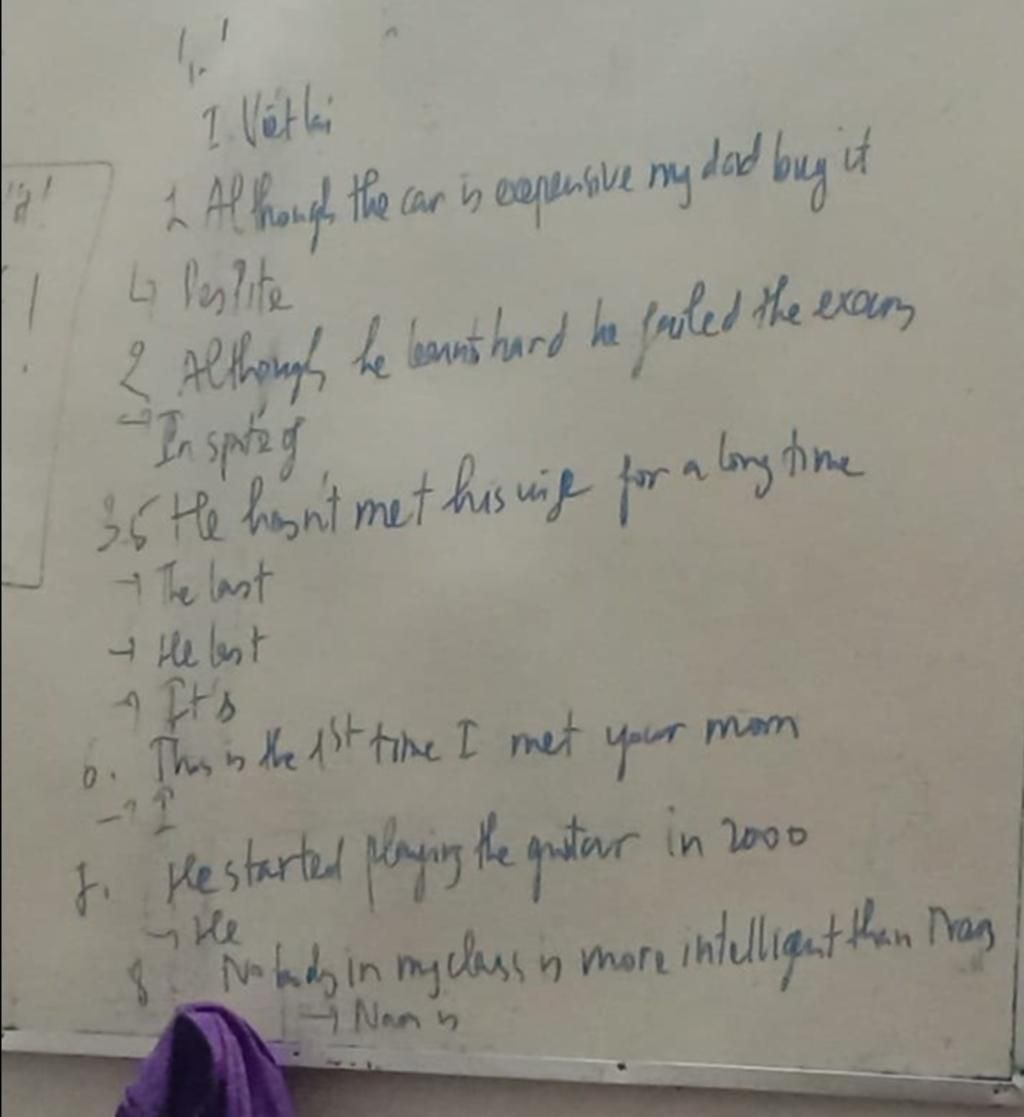 I. Viết lại
1 Although the car is expensive my dad buy it
↳ Despite
2 Although he learns hard he failed the exam
→ In spite of
3.5 He hasn't met his wife for a long time
→ The last
→ He last
→ It's
6. This is the 1st time I met your mom
→ I
7. He started playing the guitar in 2000
→ He
8 Nobody in my class is more intelligent than Nam
→ Nam is